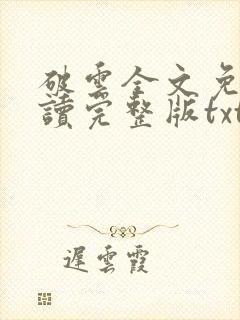 破雲全文免
讀完整版txt
遲雲霞